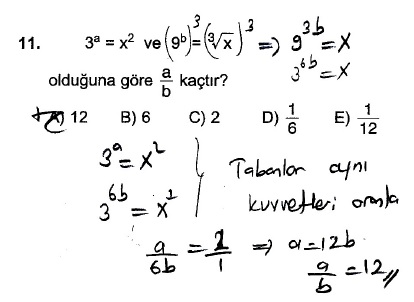 11. 3ᵃ = x² ve (9ᵇ)³=(∛x)³ ⇒ 9³ᵇ = x
3⁶ᵇ = x
olduğuna göre a/b kaçtır?
A) 12 B) 6 C) 2 D) 1/6 E) 1/12
3ᵃ = x²
Tabanlar aynı
3⁶ᵇ = x¹
kuvvetleri oranla
a/6b = 2/1 ⇒ a=12b
a/b = 12 //